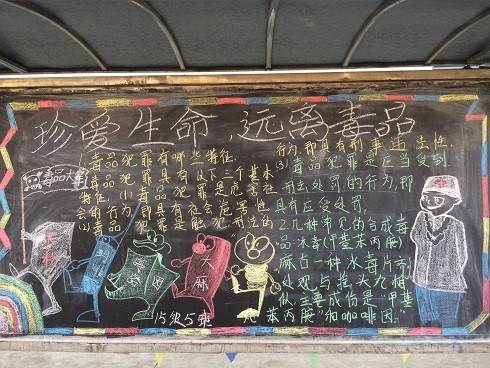 珍爱生命,远离毒品
1.毒品犯罪有哪些特征
毒品犯罪具有以下三个基本
特征(1)毒品犯罪是危害社
会的行为,即具有社会危害性
(2)毒品犯罪是触犯刑法的
行为,即具有刑事违法性.
(3)毒品犯罪是应当受到
刑法处罚的行为,即
具有应受处罚.
2.几种常见的合成毒
品冰毒(甲基苯丙胺)
麻古一种冰毒片剂
外观与摇头丸相
似主要成份是"甲基
苯丙胺"和"咖啡因"
毒品大军
大麻
15级5班